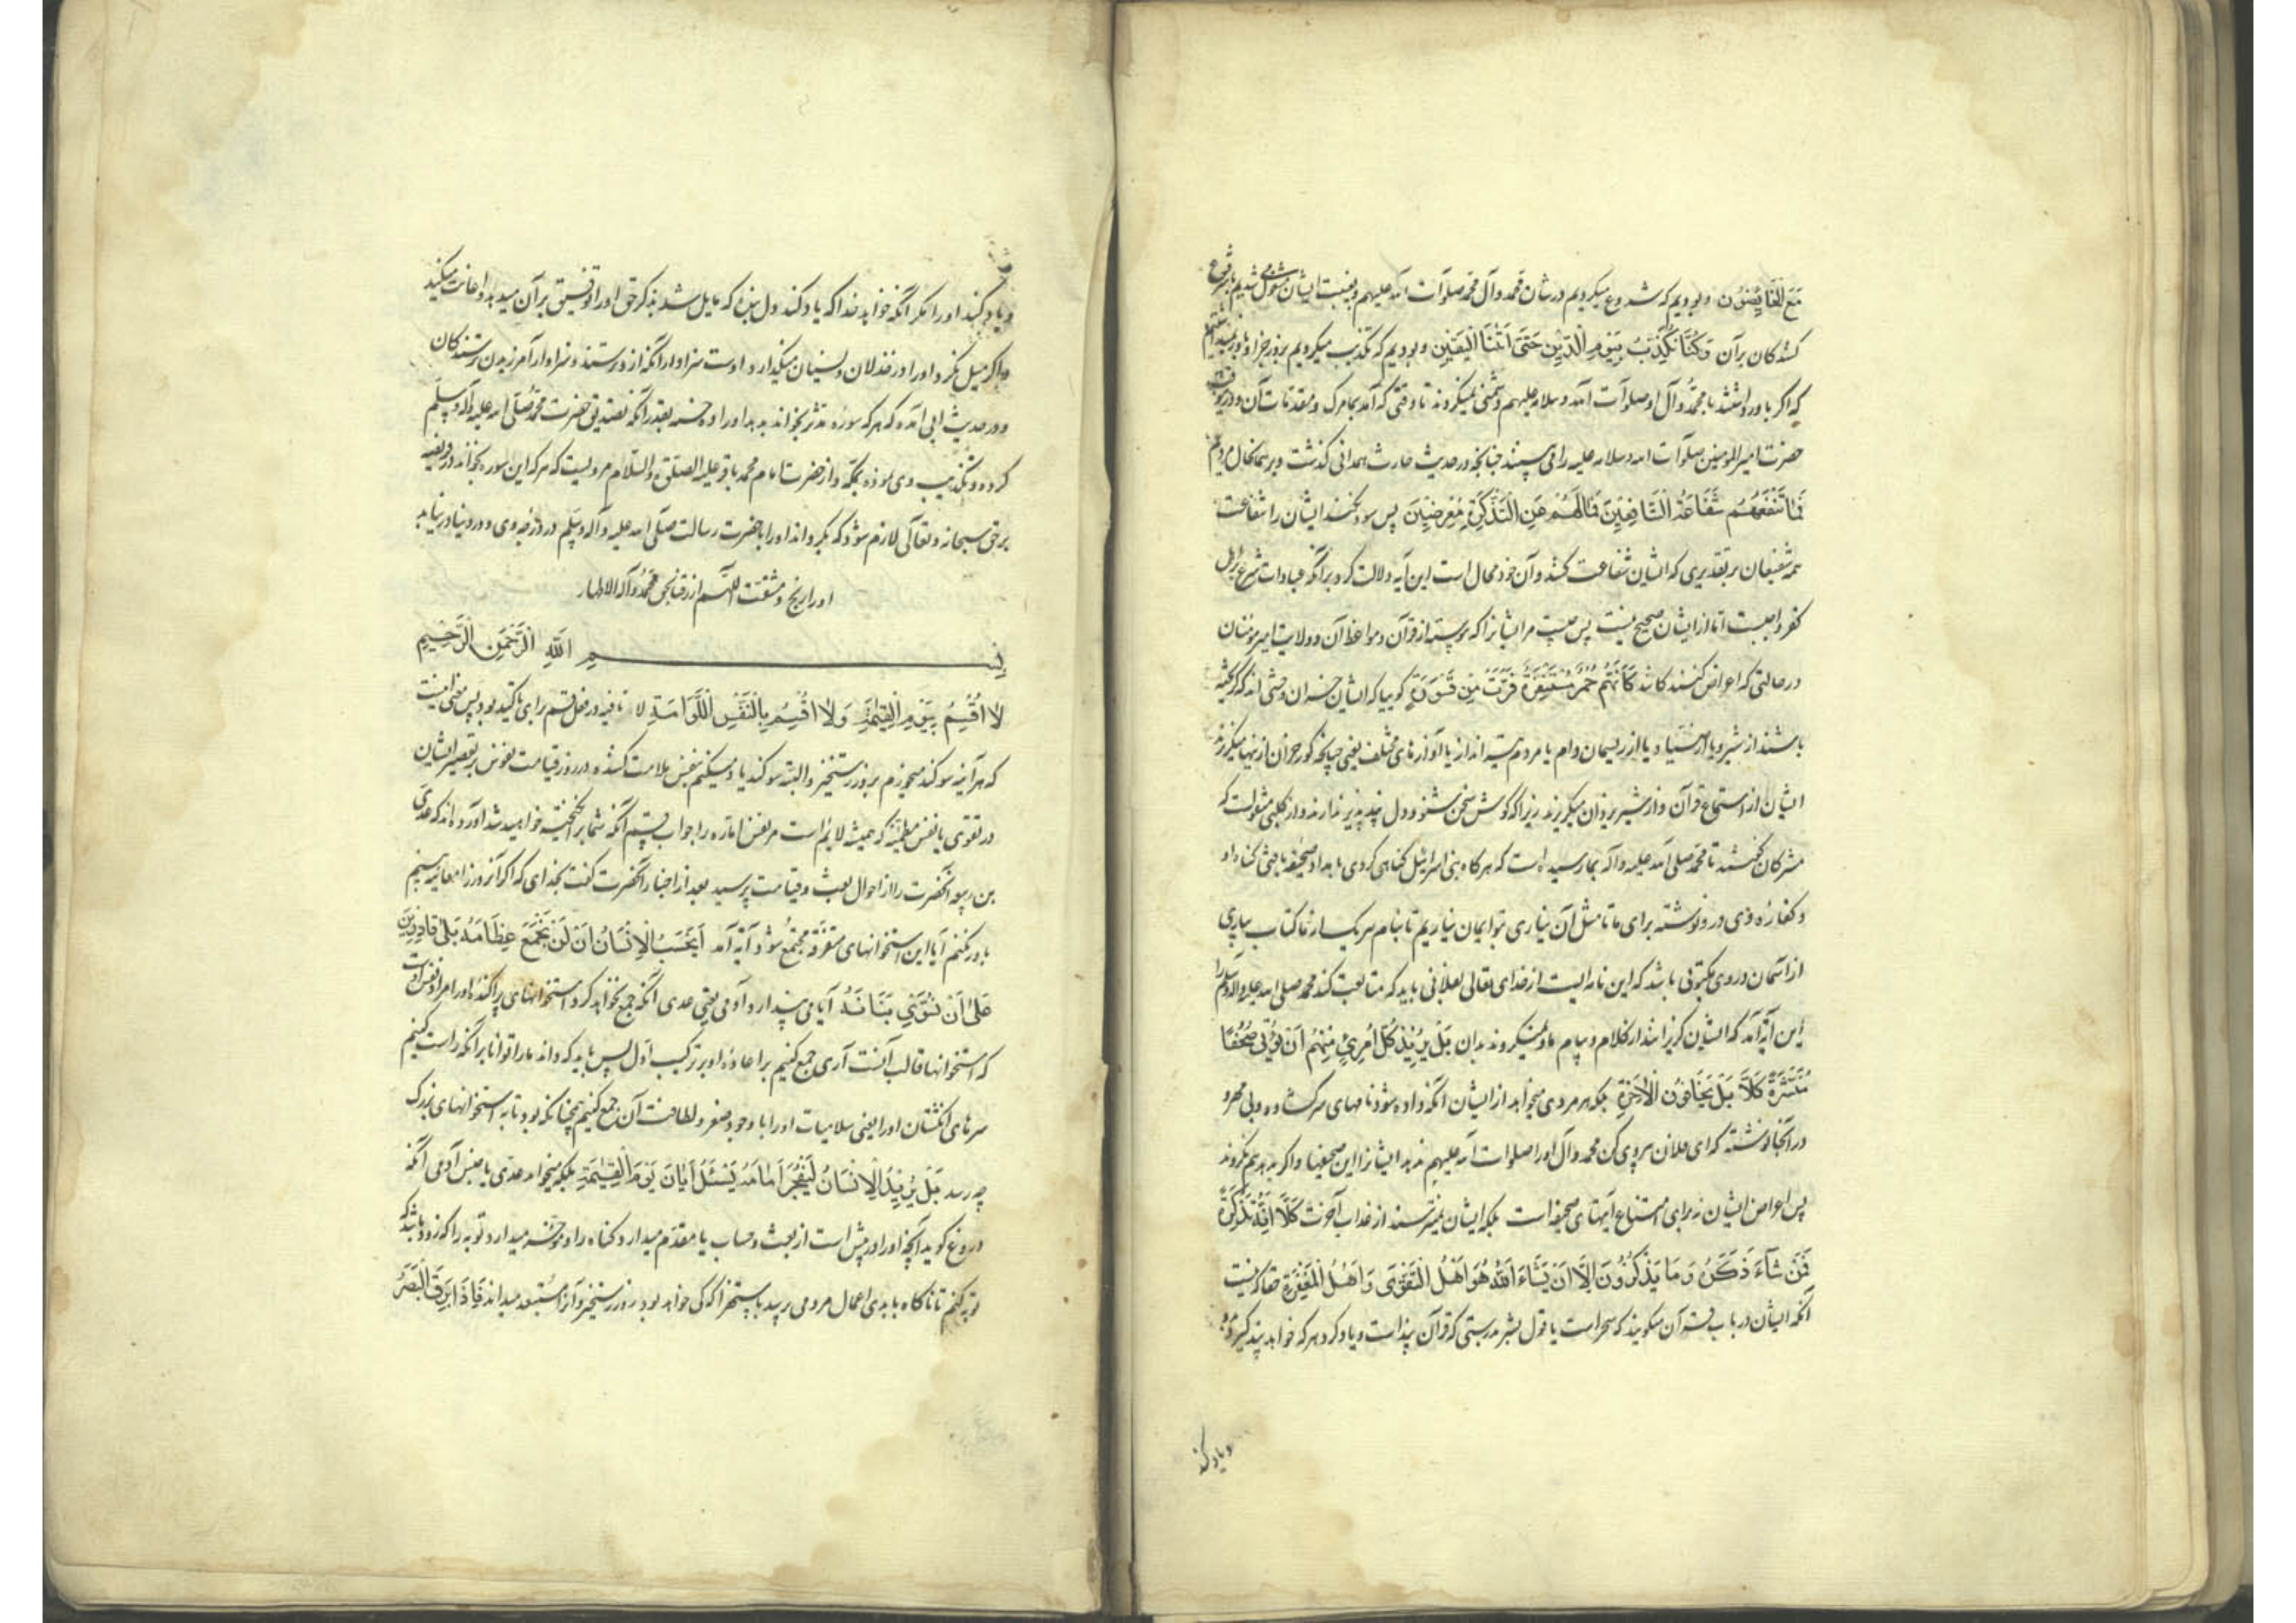 مَعَ الْخَائِضِينَ و بودیم که شروع میکردیم در شان محمد و آل محمد صلوات الله علیهم و بغیبت ایشان مشغول میشدیم با شروع
کنندکان بر آن وَكُنَّا نُكَذِّبُ بِيَوْمِ الدِّينِ حَتَّىٰ أَتٰنَا الْيَقِينُ و بودیم که تکذیب میکردیم بروز جزا و باور نمیداشتیم
که اکر باور داشتند با محمد و آل او صلوات الله و سلامه علیهم دشمنی نمیکردند تا وقتی که آمد بما مرک و مقدمات آن و در آنوقت
حضرت امیر المومنین صلوات الله و سلامه علیه را می بینند چنانچه در حدیث حارث همدانی کذشت و بر همانحال مردیم
فَمَا تَنْفَعُهُمْ شَفَاعَةُ الشَّافِعِينَ فَمَا لَهُمْ عَنِ التَّذْكِرَةِ مُعْرِضِينَ پس سود نکند ایشان را شفاعت
همه شفیعان بر تقدیری که ایشان شفاعت کنند و آن خود محال است این آیه دلالت کرد بر آنکه عبادات شرع بر اهل
کفر واجبست اما از ایشان صحیح نیست پس چیست مر ایشانرا که پیوسته از قرآن و مواعظ آن و ولایت امیر مومنان
در حالتی که اعراض کنندکانند كَأَنَّهُمْ حُمُرٌ مُسْتَنْفِرَةٌ فَرَّتْ مِنْ قَسْوَرَةٍ کوییا که ایشان خران وحشی اند که کریخته
باشند از شیر و یا از صیاد و یا از ریسمان دام یا مردم تیر انداز یا آوازهای مختلف یعنی چنانچه کورخران ازینها میکریزند
ایشان از استماع قرآن و از شیر یزدان میکریزند زیرا که کوش سخن شنو و دل پند پذیر ندارند و از کلبی منقولست که
مشرکان کفتند تا محمد صلی الله علیه و آله بما رسیده است که هرکاه بنی اسرائیل کناهی کردی بامداد صحیفه یافتی کناه او
و کفاره وی در و نوشته برای ما تا مثل آن نیاری بتو ایمان نیاریم تا بنام هر یک از ما کتاب بیاری
از آسمان در وی مکتوب باشد که این نامه ایست از خدای تعالی بفلانی باید که متابعت کند محمد صلی الله علیه و آله و سلم را
این آیه آمد که ایشان کریزانند از کلام و پیام ما و نمیکروند بدان بَلْ يُرِيدُ كُلُّ امْرِئٍ مِنْهُمْ أَنْ يُؤْتَىٰ صُحُفًا
مُنَشَّرَةً كَلَّا بَلْ لَا يَخَافُونَ الْآخِرَةَ بلکه هر مردی میخواهد از ایشان آنکه داده شود نامهای سر کشاده و بی مهر و
در آنجا نوشته که ای فلان پیروی کن محمد و آل او را صلوات الله علیهم ندهد ایشانرا این صحیفها و اکر بدهد هم نکروند
پس اعراض ایشان نه برای امتناع آیتهای صحیفه است بلکه ایشان نمیترسند از عذاب آخرت كَلَّا إِنَّهُ تَذْكِرَةٌ
فَمَنْ شَاءَ ذَكَرَهُ وَمَا يَذْكُرُونَ إِلَّا أَنْ يَشَاءَ اللَّهُ هُوَ أَهْلُ التَّقْوَىٰ وَأَهْلُ الْمَغْفِرَةِ حقا که نیست
آنکه ایشان در باب قرآن میکویند که سحر است یا قول بشر بدرستی که قرآن پند است و یاد کرد هر که خواهد پند کیرد بدو
و یاد کند
و یاد کنند او را مکر آنکه خواهد خدا که یاد کند دل بنده که مایل شد بذکر حق او را توفیق بر آن میدهد و اعانت میکند
و اکر میل نکرد او را در خذلان و نسیان میکذارد و اوست سزاوار آنکه ازو ترسند و سزاوار آمرزیدن ترسندکان
و در حدیث ابی آمده که هر که سوره مدثر بخواند بدهد او را ده حسنه بعدد آنکه تصدیق حضرت محمد صلی الله علیه و آله و سلم
کرده و تکذیب وی نموده بمکه و از حضرت امام محمد باقر علیه الصلوة و السلام مرویست که هر که این سوره بخواند در فریضه
بر حق سبحانه و تعالی لازم شود که بکرداند او را با حضرت رسالت صلی الله علیه و آله و سلم در درجه وی و در دنیا در نیابد
او را رنج و مشقت اللهم ارزقنا بحق محمد و آله الاطهار
بِسْمِ اللَّهِ الرَّحْمَٰنِ الرَّحِيمِ
لَا أُقْسِمُ بِيَوْمِ الْقِيٰمَةِ وَلَا أُقْسِمُ بِالنَّفْسِ اللَّوَّامَةِ لا نافیه در فعل قسم برای تاکید بود پس معنی اینست
که هر آینه سوکند میخورم بروز رستخیز و البته سوکند یاد میکنم بنفس ملامت کننده در روز قیامت نفوس بر تقصیر ایشان
در تقوی یا نفس مطمئنه که همیشه لایم است مر نفس اماره را جواب قسم آنکه شما برانکیخته خواهید شد آورده اند که عدی
بن ربیعه آنحضرت را از احوال بعث و قیامت پرسید بعد از اخبار آنحضرت کفت بخدای که اکر آنروز را معاینه بینم
باور نکنم آیا این استخوانهای متفرقه مجتمع شود آیه آمد أَيَحْسَبُ الْإِنْسَانُ أَنْ لَنْ نَجْمَعَ عِظَامَهُ بَلَىٰ قَادِرِينَ
عَلَىٰ أَنْ نُسَوِّيَ بَنَانَهُ آیا می پندارد آدمی یعنی عدی آنکه جمع نخواهد کرد استخوانهای پراکنده او را مراد نفس اوست
که استخوانها قالب آنست آری جمع کنیم بر اعاده او بر ترکیب اول پس باید که داند ما را توانا بر آنکه راست کنیم
سرهای انکشتان او را یعنی سلامیات او را با وجود صغر و لطافت آن جمع کنیم همچنانکه بود تا به استخوانهای بزرک
چه رسد بَلْ يُرِيدُ الْإِنْسَانُ لِيَفْجُرَ أَمَامَهُ يَسْئَلُ أَيَّانَ يَوْمُ الْقِيٰمَةِ بلکه میخواهد عدی یا جنس آدمی آنکه
دروغ کوید آنچه او را در پیش است از بعث و حساب یا مقدم میدارد کناه را و موخر میدارد توبه را که زود باشد که
توبه کنم تا ناکاه با بدی اعمال مردمی پرسد باستهزا که کی خواهد بود روز رستخیز و آنرا مستبعد میداند فَإِذَا بَرِقَ الْبَصَرُ